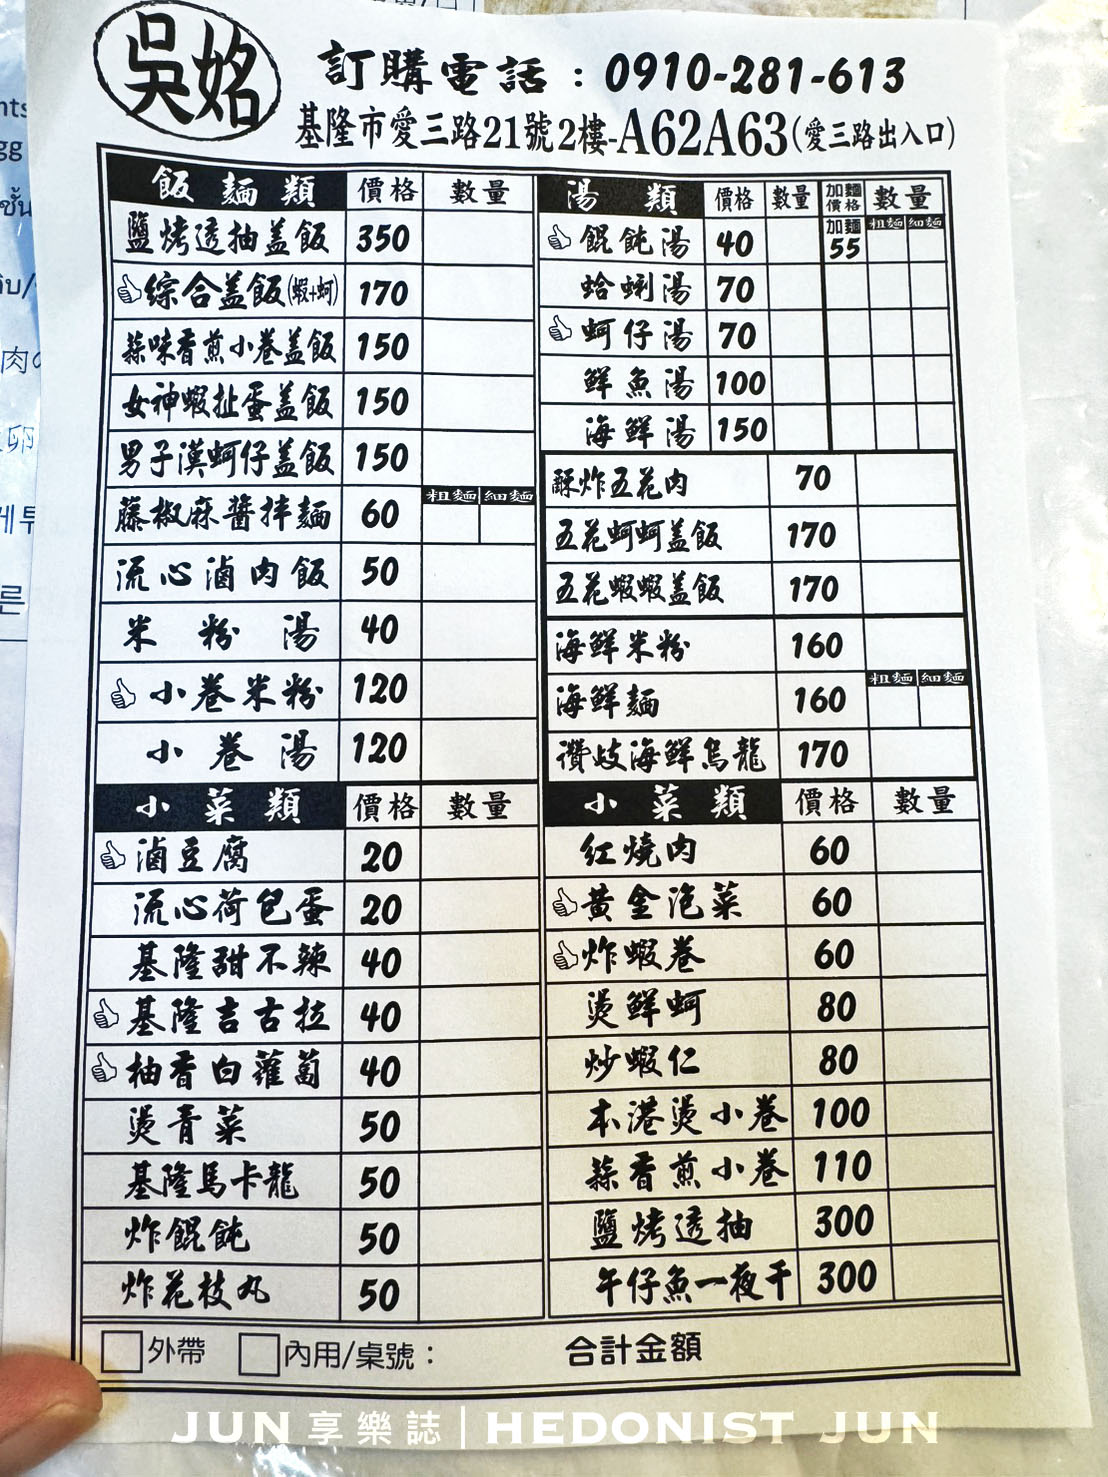 吳姳
訂購電話：0910-281-613
基隆市愛三路21號2樓-A62A63(愛三路出入口)
飯麵類 價格 數量
鹽烤透抽盖飯 350
綜合盖飯(蝦+蚵) 170
蒜味香煎小卷盖飯 150
女神蝦扯蛋盖飯 150
男子漢蚵仔盖飯 150
藤椒麻醬拌麵 60 粗麵 細麵
流心滷肉飯 50
米粉湯 40
小卷米粉 120
小卷湯 120
湯類 價格 數量 加麵價格 數量
餛飩湯 40 加麵55 粗麵 細麵
蛤蜊湯 70
蚵仔湯 70
鮮魚湯 100
海鮮湯 150
酥炸五花肉 70
五花蚵蚵盖飯 170
五花蝦蝦盖飯 170
海鮮米粉 160
海鮮麵 160 粗麵 細麵
讚岐海鮮烏龍 170
小菜類 價格 數量
滷豆腐 20
流心荷包蛋 20
基隆甜不辣 40
基隆吉古拉 40
柚香白蘿蔔 40
燙青菜 50
基隆馬卡龍 50
炸餛飩 50
炸花枝丸 50
小菜類 價格 數量
紅燒肉 60
黃金泡菜 60
炸蝦卷 60
燙鮮蚵 80
炒蝦仁 80
本港燙小卷 100
蒜香煎小卷 110
鹽烤透抽 300
午仔魚一夜干 300
外帶 內用/桌號： 合計金額
JUN享樂誌 | HEDONIST JUN